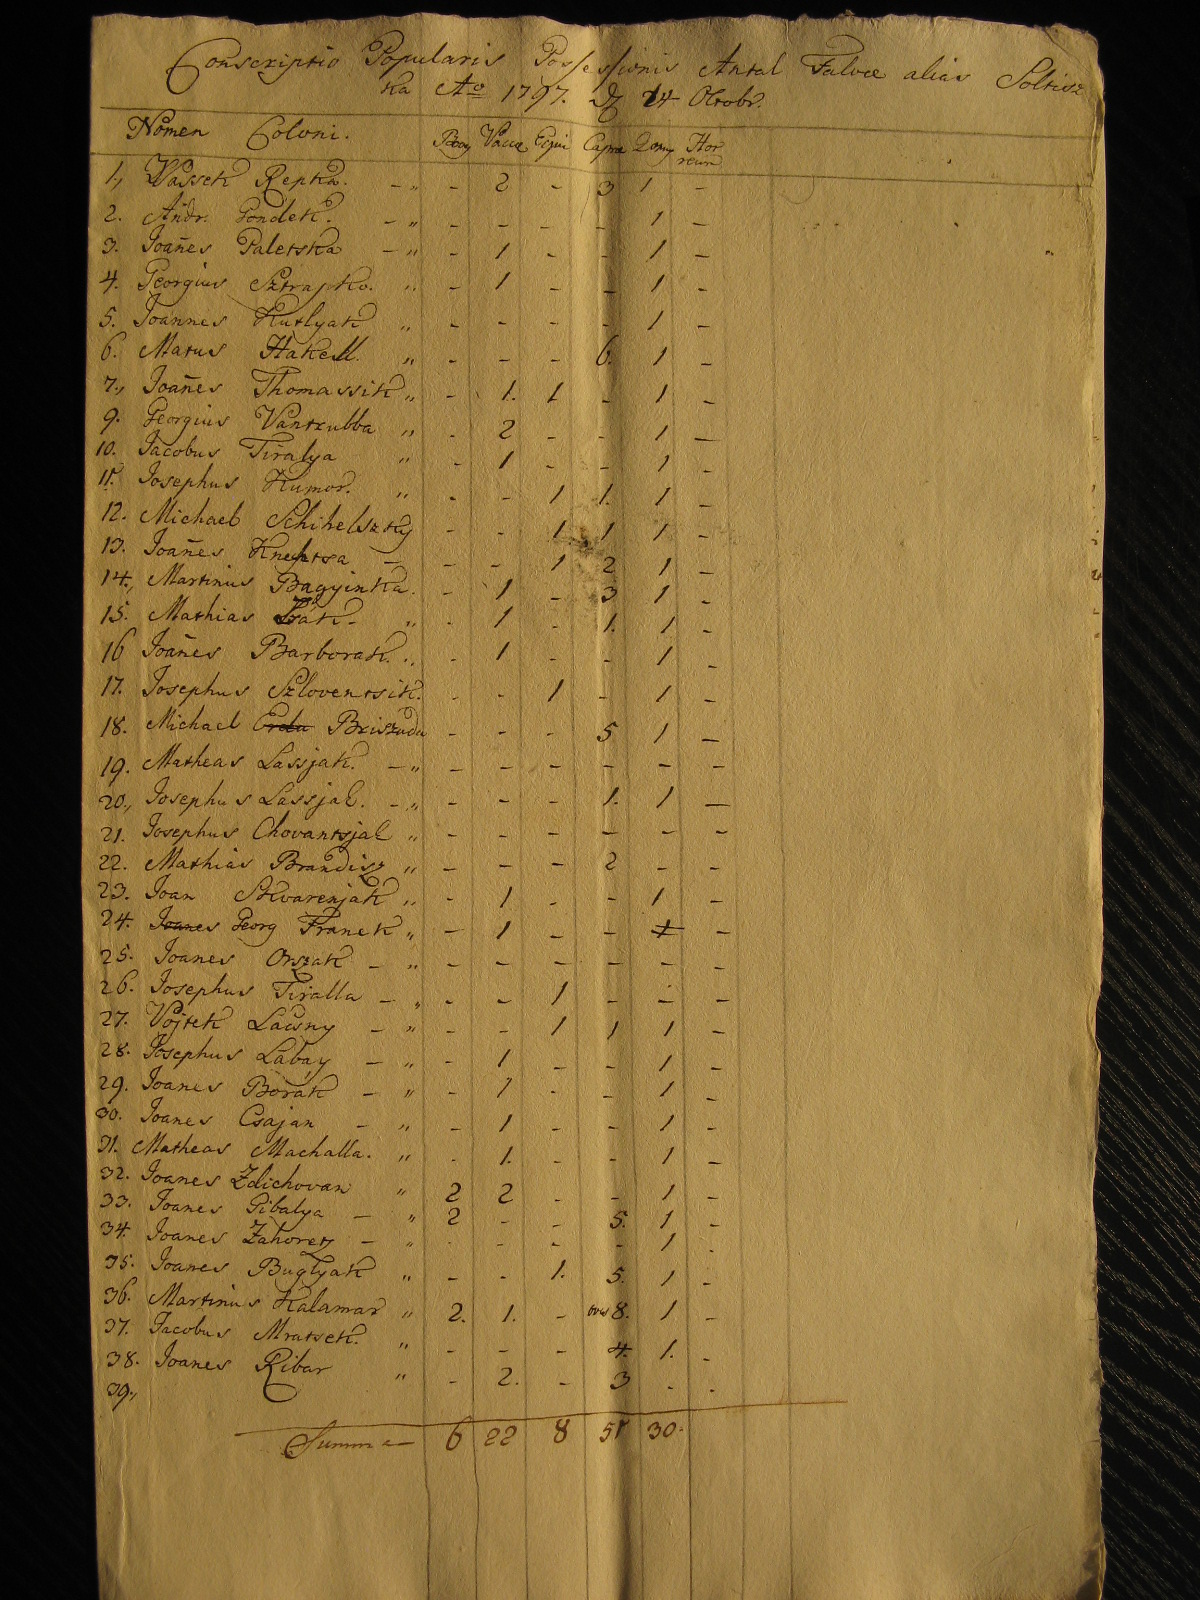 Conscriptio Popularis Possessionis Antal Falvae alias Soltisz
ka Ao 1797. D 24 Octobr.
Nomen Coloni. Boay Vacca Equi Capra Domy Hor
reum
1., Wassek Repka. - „ - 2 - 3 1 -
2. Andr. Gondek. - „ - - - - 1 -
3. Joan̄es Paletska - „ - 1 - - 1 -
4. Georgius Sztrapko. „ - 1 - - 1 -
5. Joannes Kutlyak „ - - - - 1 -
6. Matus Hakell. „ - - - 6. 1 -
7., Joan̄es Thomassik „ - 1. 1 - 1 -
9. Georgius Vantrubba „ - 2 - - 1 -
10. Jacobus Tiralya „ - 1 - - 1 -
11. Josephus Kumor. „ - - 1 1. 1 -
12. Michael Schihelszky - - 1 1 1 -
13. Joan̄es Knehtsa - - - 1 2 1 -
14., Martinus Bagyinka. - 1 - 3 1 -
15. Mathias „ - 1 - 1. 1 -
16 Joan̄es Barborak. „ - 1 - - 1 -
17. Josephus Szloventsik. - - 1 - 1 -
18. Michael Briszuda - - - 5 1 -
19. Matheas Lassjak. - „ - - - - - -
20., Josephus Lassjak. - „ - - - 1. 1 -
21. Josephus Chovantsjak „ - - - - - -
22. Mathias Brandisz „ - - - 2 - -
23. Joan Skvarenjak „ - 1 - - 1 -
24. Joanes Georg Franek „ - 1 - - 1 -
25. Joanes Orszak - „ - - - - - -
26. Josephus Tiralla - „ - - 1 - - -
27. Vojtek Lacsny - „ - - 1 1 1 -
28. Josephus Labay - „ - 1 - - 1 -
29. Joanes Borak - „ - 1 - - 1 -
30. Joanes Csajan - „ - 1 - - 1 -
31. Matheas Machalla. „ - 1. - - 1 -
32. Joanes Zdichovan „ 2 2 - - 1 -
33. Joanes Gibalya - „ 2 - - 5. 1 -
34. Joanes Zahoretz - „ - - - - 1 -
35. Joanes Buglyak „ - - 1. 5. 1 -
36. Martinus Kalamar „ 2. 1. - oves 8. 1 -
37. Jacobus Mratsek. „ - - - 4. 1. -
38. Joanes Ribar „ - 2. - 3 - -
39.,
Summa 6 22 8 51 30.